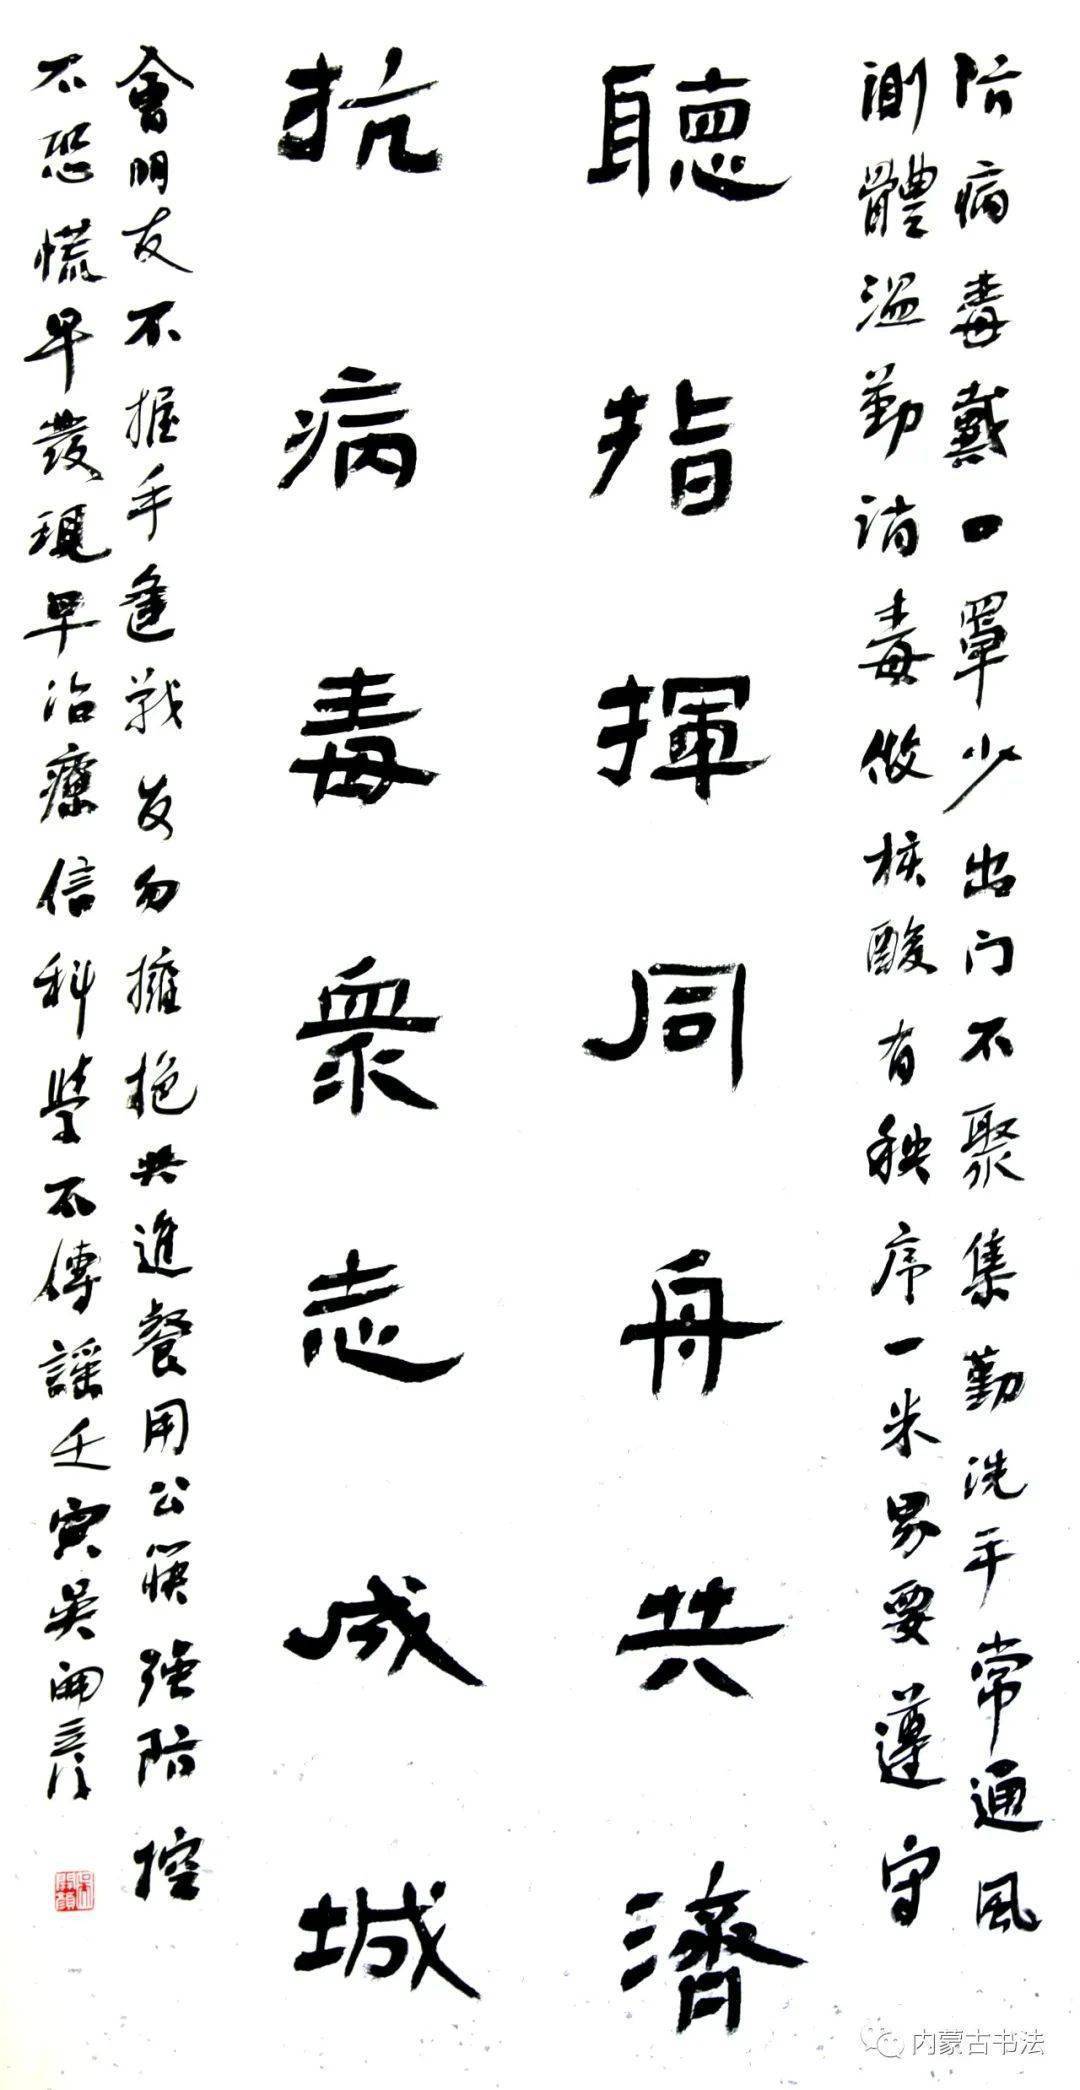 防病毒戴口罩少出门不聚集勤洗手常通風
測體溫勤消毒做核酸有秩序一米界要遵守
聽指揮同舟共濟
抗病毒衆志成城
會朋友不握手逢戰友勿擁抱共進餐用公筷強防控
不恐慌早發現早治療信科學不傳謠壬寅吴
内蒙古书法